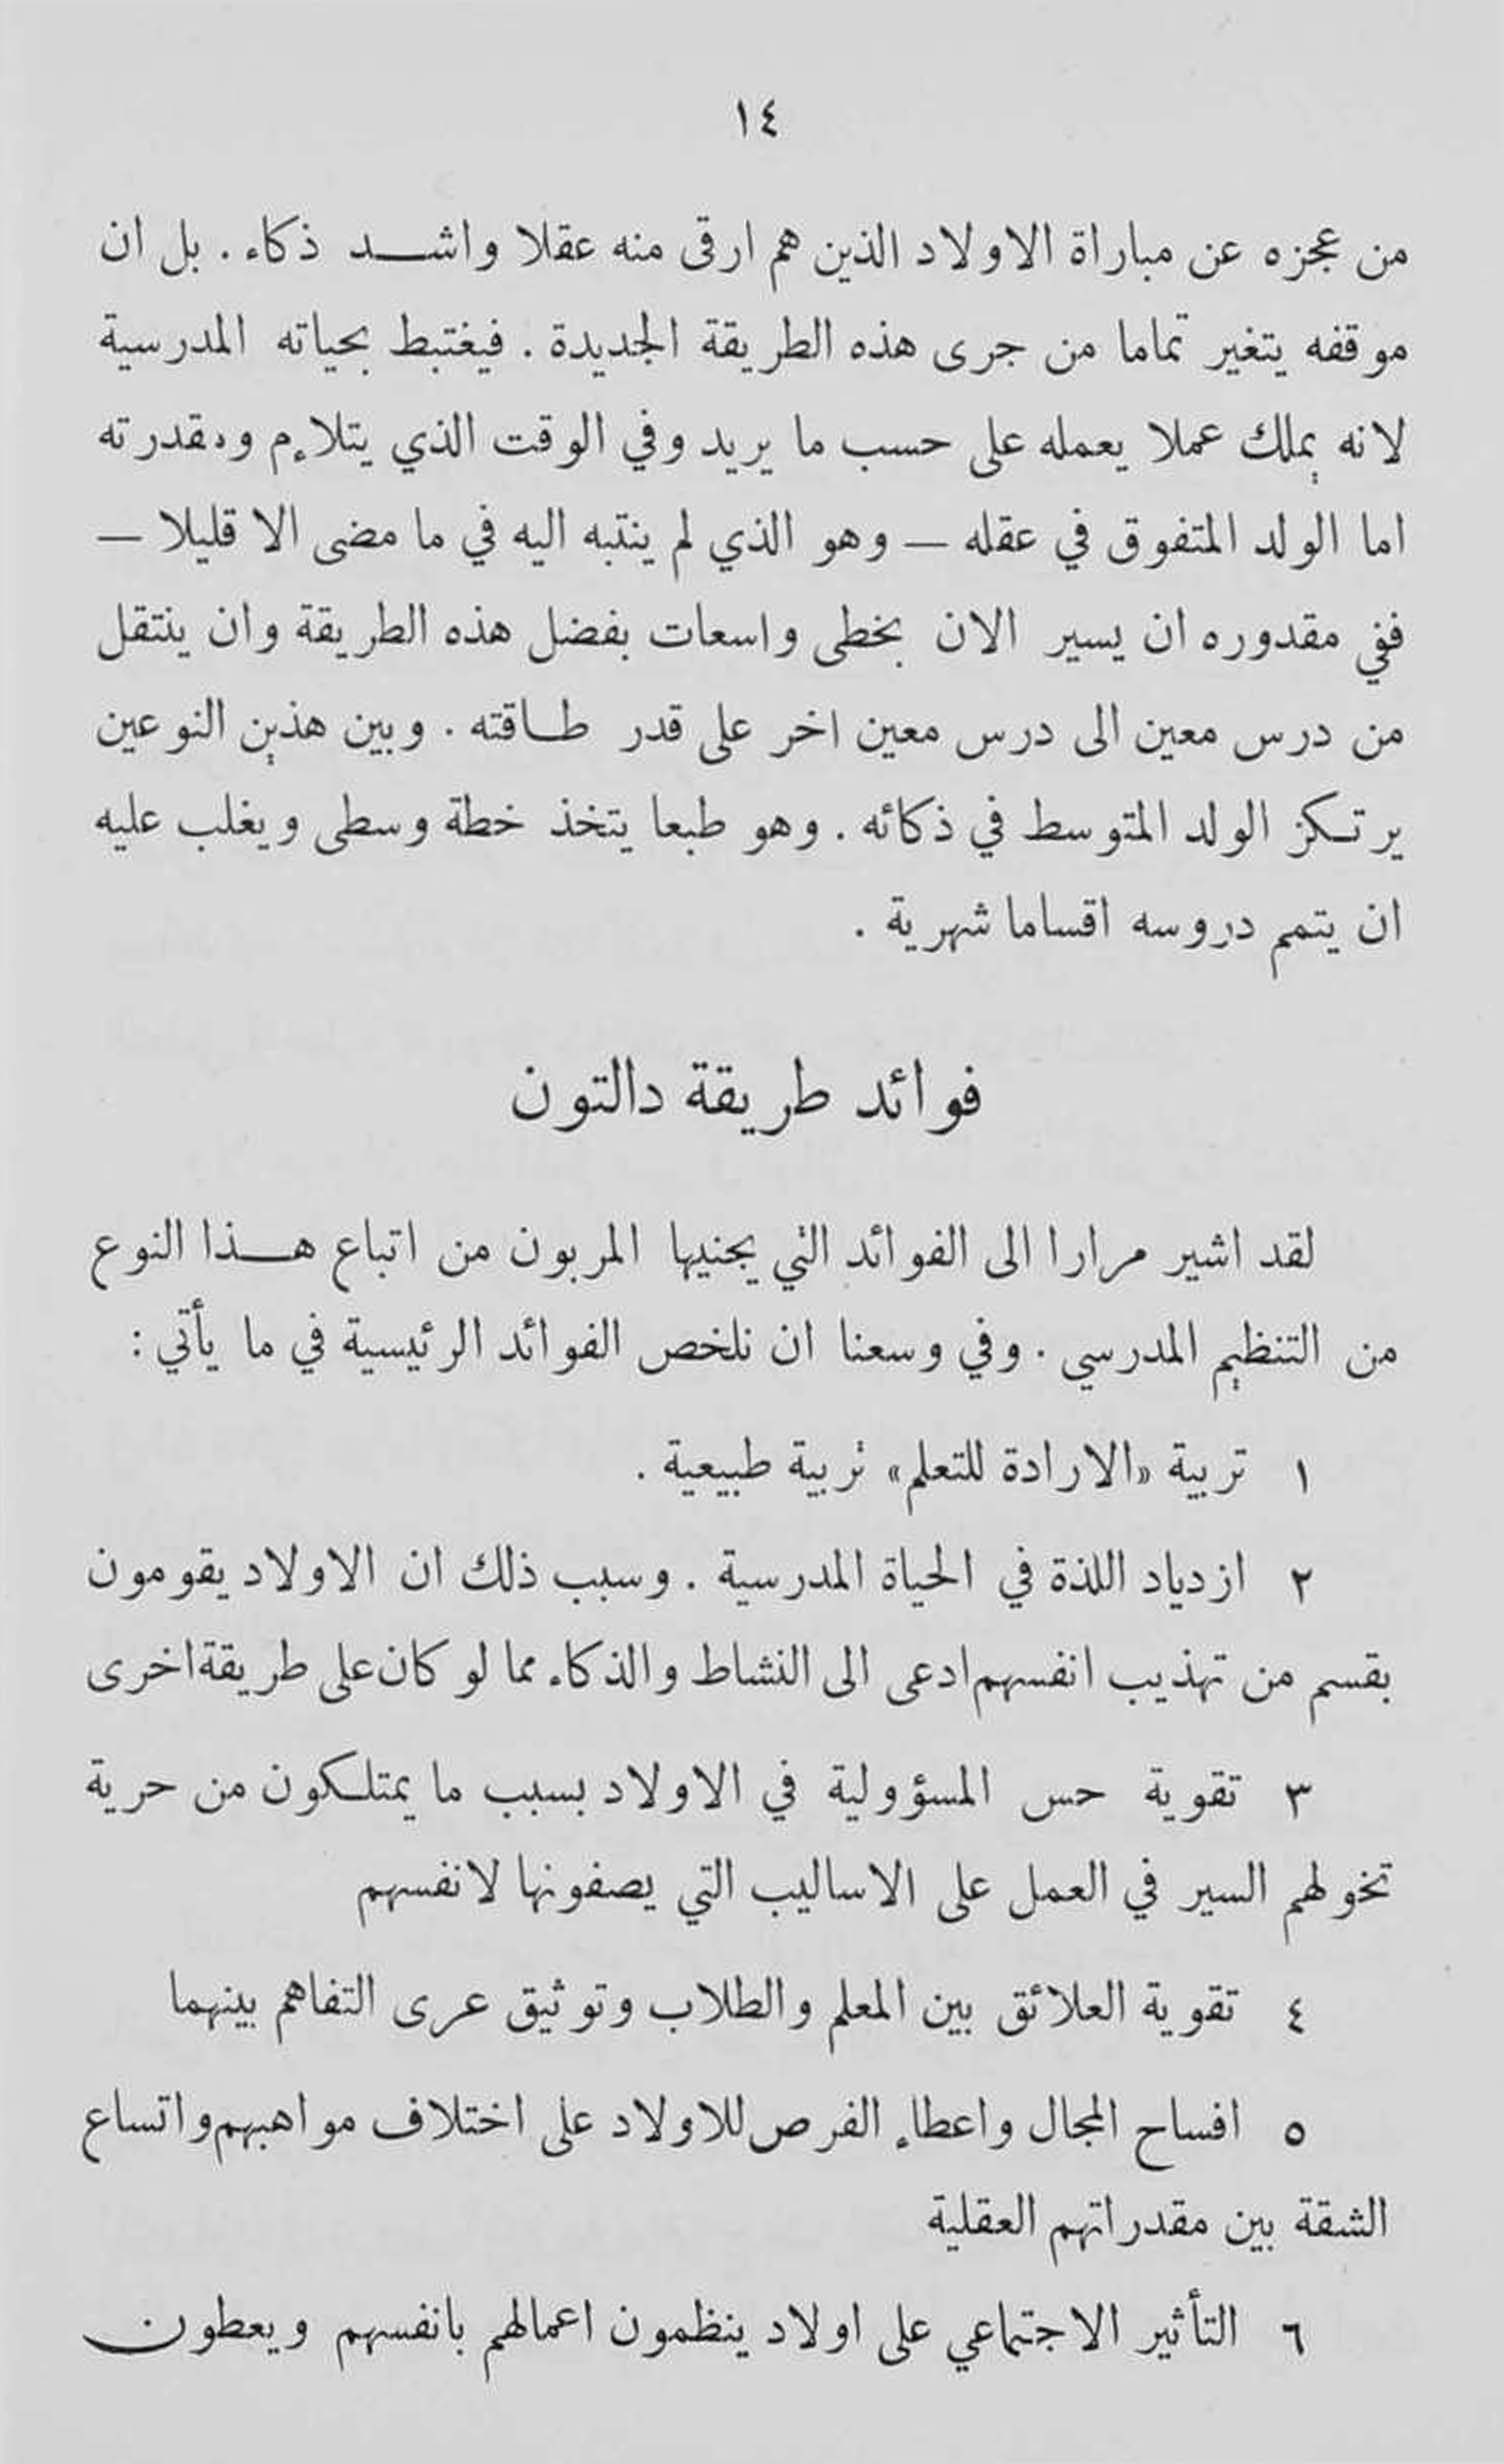 ١٤
من عجزه عن مباراة الاولاد الذين هم ارقى منه عقلا واشد ذكاء . بل ان
موقفه يتغير تماما من جرى هذه الطريقة الجديدة . فيغتبط بحياته المدرسية
لانه يملك عملا يعمله على حسب ما يريد وفي الوقت الذي يتلاءم ومقدرته
اما الولد المتفوق في عقله — وهو الذي لم ينتبه اليه في ما مضى الا قليلا —
ففي مقدوره ان يسير الان بخطى واسعات بفضل هذه الطريقة وان ينتقل
من درس معين الى درس معين اخر على قدر طاقته . وبين هذين النوعين
يرتكز الولد المتوسط في ذكائه . وهو طبعا يتخذ خطة وسطى ويغلب عليه
ان يتمم دروسه اقساما شهرية .
فوائد طريقة دالتون
لقد اشير مرارا الى الفوائد التي يجنيها المربون من اتباع هذا النوع
من التنظيم المدرسي . وفي وسعنا ان نلخص الفوائد الرئيسية في ما يأتي :
١ تربية «الارادة للتعلم» تربية طبيعية .
٢ ازدياد اللذة في الحياة المدرسية . وسبب ذلك ان الاولاد يقومون
بقسم من تهذيب انفسهم ادعى الى النشاط والذكاء مما لو كان على طريقة اخرى
٣ تقوية حس المسؤولية في الاولاد بسبب ما يمتلكون من حرية
تخولهم السير في العمل على الاساليب التي يصفونها لانفسهم
٤ تقوية العلائق بين المعلم والطلاب وتوثيق عرى التفاهم بينهما
٥ افساح المجال واعطاء الفرص للاولاد على اختلاف مواهبهم واتساع
الشقة بين مقدراتهم العقلية
٦ التأثير الاجتماعي على اولاد ينظمون اعمالهم بانفسهم ويعطون